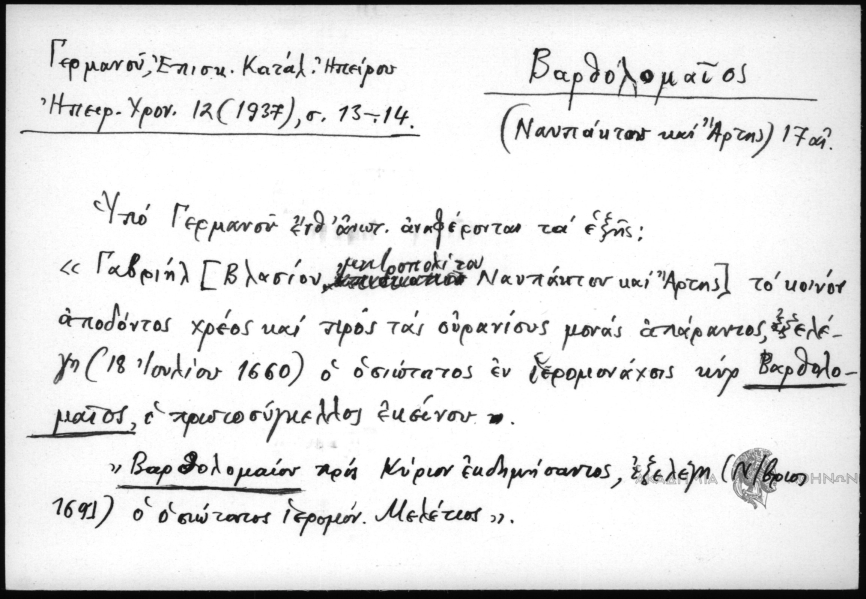 Γερμανοῦ, Ἐπισκ. Κατάλ. Ἠπείρου
Ἠπειρ. Χρον. 12 (1937), σ. 13–14.
Βαρθολομαῖος
(Ναυπάκτου καί Ἄρτης) 17 αἰ.
Ὑπό Γερμανοῦ ἔνθ' ἀνωτ. ἀναφέρονται τά ἑξῆς:
« Γαβριήλ [Βλασίου, μητροπολίτου Ναυπάκτου καί Ἄρτης] τό κοινόν
ἀποδόντος χρέος καί πρός τάς οὐρανίους μονάς ἀπάραντος, ἐξελέ-
γη (18 Ἰουλίου 1660) ὁ ὁσιώτατος ἐν ἱερομονάχοις κύρ Βαρθολο-
μαῖος, ὁ πρωτοσύγκελλος ἐκείνου.
» Βαρθολομαίου πρός Κύριον ἐκδημήσαντος, ἐξελέγη (Ν/βριος
1691) ὁ ὁσιώτατος ἱερομόν. Μελέτιος ».
ΑΚΑΔΗΜΙΑ ΑΘΗΝΩΝ